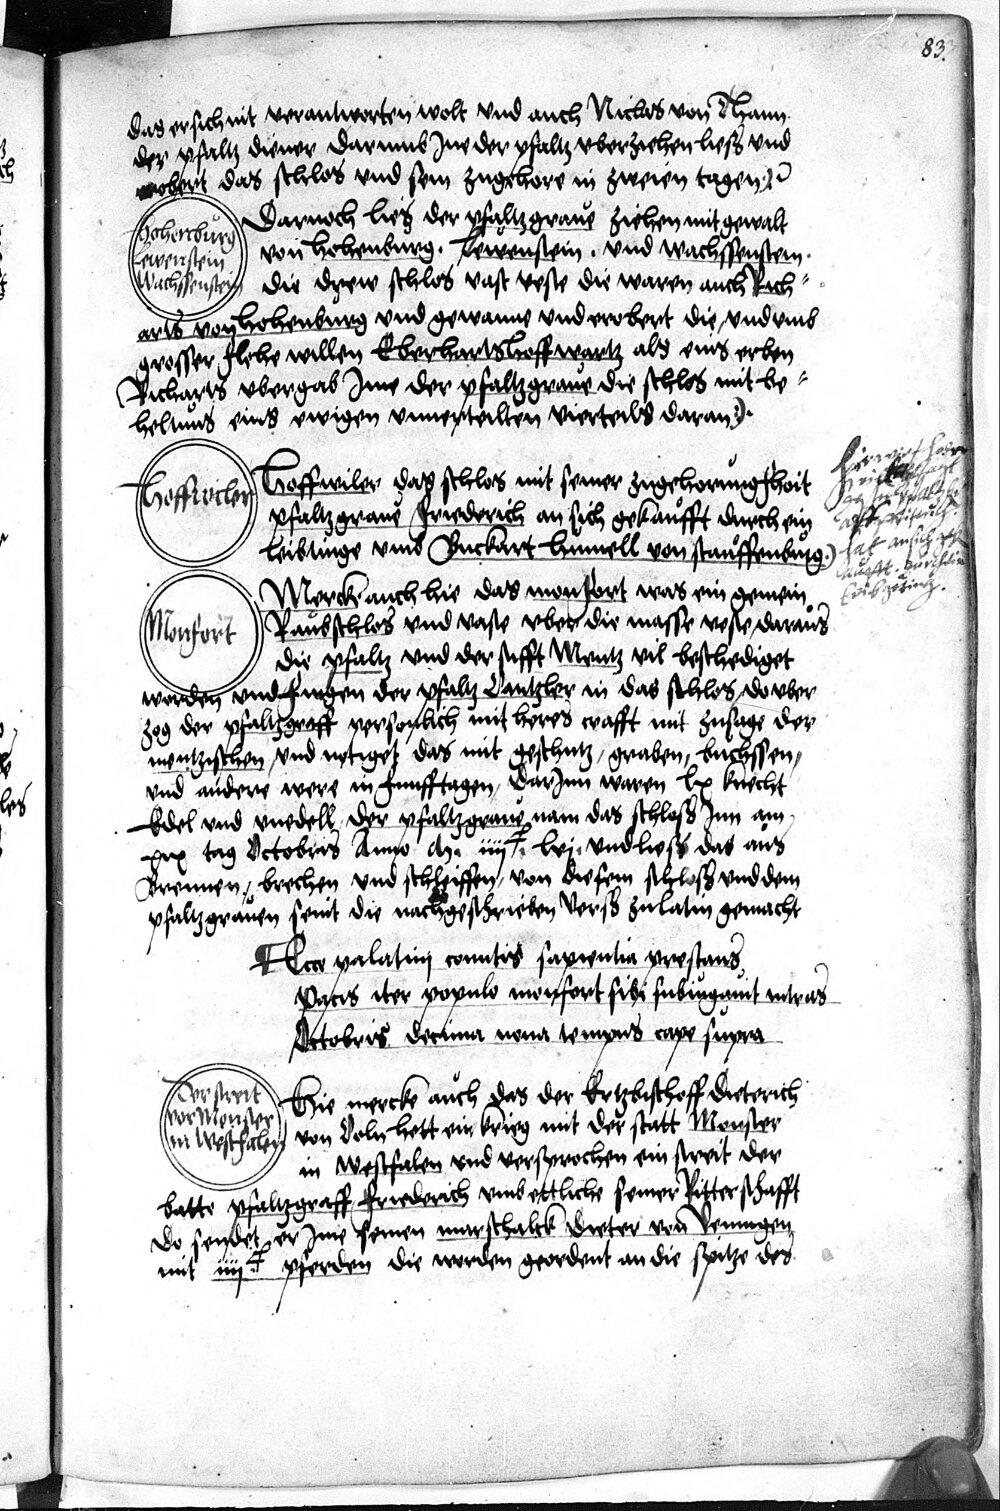 83.
das er sich nit verantworten wolt vnd auch Niclas von Thann
der pfaltz diener darumb Ine der pfaltz vberziehen liess vnd
erobert das schlos vnd sein zugehore in zweien tagen
Hohenburg
Lewenstein
Wachssenstein
Darnoch lies der pfaltzgraue ziehen mit gewalt
von Hohenburg. Lewenstein. vnd Wachssenstein.
die drew schlos vast veste die waren auch Rich"
arts von Hohenburg vnd gewanne vnd erobert die, vnd vmb
grosser flehe willen Eberharts Hoffwartz als eins erben
Richarts vbergab Ime der pfaltzgraue die schlos mit be"
heltnus eins ewigen vnuerteilten vierteils daran.
Hoffwiler
Hoffwiler das schlos mit seiner zugehorung hait
pfaltzgraue Friederich an sich gekaufft durch ein
leibtunge vmb Buckart Humell von Stauffenburg.
Monfort
Merck auch hie das monfort was ein gemein
Raubschlos vnd vaste vber die masse veste daraus
die pfaltz vnd der stifft Mentz vil beschediget
worden vnd fingen der pfaltz Cantzler in das schlos, do vber
zog der pfaltzgraff personlich mit heres crafft mit zusage der
mentzischen, vnd notiget das mit geschutz, graben, buchssen,
vnd andere were in funfftagen, Dar Inn waren lx knecht
Edel vnd vnedell, der pfaltzgraue nam das schloss Inn am
xix tag Octobris Anno M. iiii c. lvi. vnd liess das aus
Brennen, brechen vnd schleiffen, von diesem schloss vnd dem
pfaltzgrauen seint die nachgeschrieben verss zu latin gemacht
Ecce palatini comitis sapientia prestans
Pacis iter populo monfort sibi subiugauit intrans
Octobris decima nona tempus cape supra
Der streit
vor Monster
in Westfalen
Hie mercke auch das der Ertzbischoff Dieterich
von Coln hett ein krieg mit der statt Monster
in Westfalen vnd versprochen ein streit der
batte pfaltzgraff Friederich vmb ettliche seiner Ritterschafft
do sendet er Ime seinen marschalck Dieter von Venningen
mit iiii c pferden die werden geordent an die spitze des